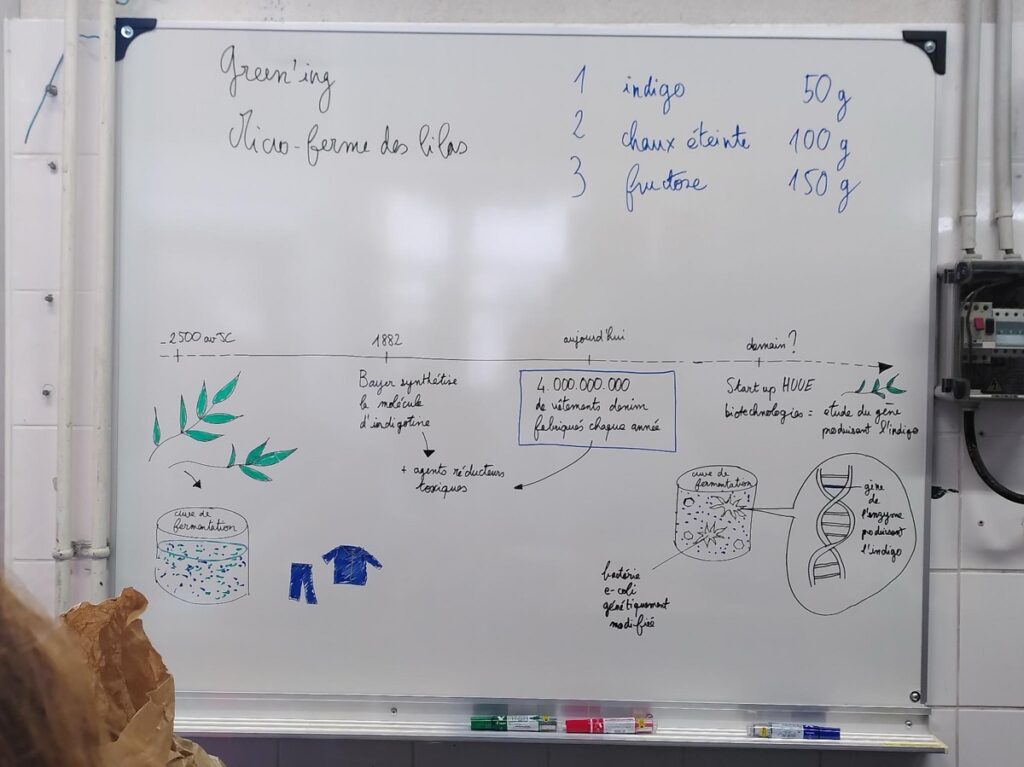 Green'ing
Micro-ferme des lilas
1 indigo 50 g
2 chaux éteinte 100 g
3 fructose 150 g
-2500 av JC
1882
aujourd'hui
demain?
Bayer synthétise
la molécule
d'indigotine
+ agents réducteurs
toxiques
4.000.000.000
de vêtements denim
fabriqués chaque année
Start up HUUE
biotechnologies = etude du gène
produisant l'indigo
cuve de
fermentation
cuve de
fermentation
gène
de
l'enzyme
produisant
l'indigo
bactérie
e-coli
génétiquement
modifiée